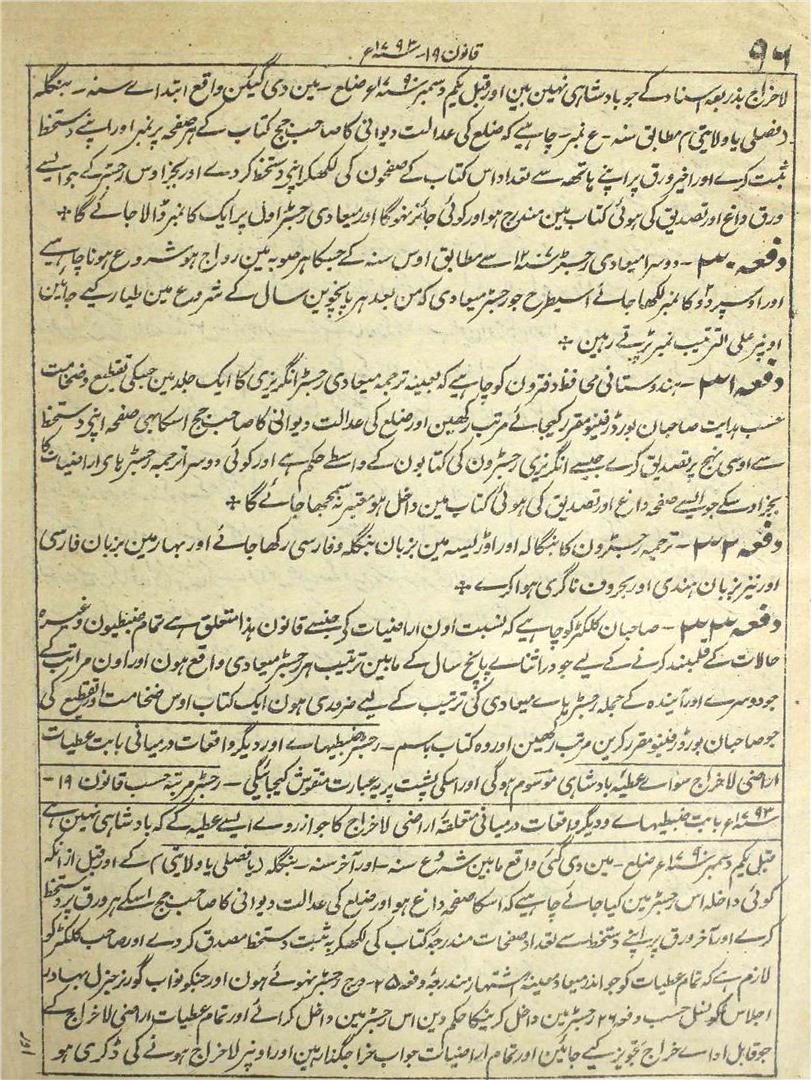 ۹۶
قانون ۱۹ ۱۷۹۳ء
لاخراج بذریعہ اسناد کے جو بادشاہی نہین ہین اور قبل یکم دسمبر ۱۷۹۰ء ضلع - مین دی گیئن واقع ابتداے سنہ - بنگلہ
د فصلی یا ولایتی م مطابق سنہ - ع نمبر - چاہیے کہ ضلع کی عدالت دیوانی کا صاحب جج کتاب کے ہر صفحہ پر نمبر اور اپنے دستخط
ثبت کرے اور اخیر ورق پر اپنے ہاتھہ سے تعداد اس کتاب کے صفحون کی لکھکر اپنی دستخط کر دے اور بجز اوس رجسٹر کے جو ایسے
ورق داغ اور تصدیق کی ہوئی کتاب مین مندرج ہو اور کوئی جائز نہوگا اور میعادی رجسٹر اول پر ایک کا نمبر ڈالا جائے گا ٭
دفعہ ۳۰ - دوسرا میعادی رجسٹر سے مطابق اوس سنہ کے جسکا ہر صوبہ مین رواج ہو شروع ہونا چاہیے
اور اوسپر دو کا نمبر لکھا جائے اسیطرح جو رجسٹر میعادی کہ من بعد ہر پانچوین سال کے شروع مین طیار کیے جائین
اونپر علی الترتیب نمبر پڑتے رہین ٭
دفعہ ۳۱ - ہندوستانی محافظ دفترون کو چاہیے کہ بعینہ ترجمہ میعادی رجسٹر انگریزی کا ایک جلد مین جسکی تقطیع و ضخامت
حسب ہدایت صاحبان بورڈ رفینو مقرر کیجائے مرتب رکھین اور ضلع کی عدالت دیوانی کا صاحب جج اسکا بہی صفحہ اپنی دستخط
سے اوسی نہج پر تصدیق کرے جیسے انگریزی رجسٹرون کی کتابون کے واسطے حکم ہے اور کوئی دوسرا ترجمہ رجسٹرہای اراضیات کا
بجز اوسکے جو ایسے صفحہ داغ اور تصدیق کی ہوئی کتاب مین داخل ہو معتبر نہ سمجھا جائے گا ٭
دفعہ ۳۲ - ترجمہ رجسٹرون کا بنگالہ اور اوڑیسہ مین بزبان بنگلہ و فارسی رکھا جائے اور بہار مین بزبان فارسی
اور نیز بزبان ہندی اور بحروف ناگری ہوا کرے ٭
دفعہ ۳۳ - صاحبان کلکٹر کو چاہیے کہ نسبت اون اراضیات کی جنسے قانون ہذا متعلق ہے تمام ضبطیون وغیرہ
حالات کے قلمبند کرنے کے لیے جو در اثناے پانچ سال کے مابین ترتیب ہر رجسٹر میعادی واقع ہون اور اون مراتب کے
جو دوسرے اور آیندہ کے جملہ رجسٹرہاے میعادی کی ترتیب کے لیے ضروری ہون ایک کتاب اوس ضخامت اور تقطیع کی
جو صاحبان بورڈ رفینو مقرر کرین مرتب رکھین اور وہ کتاب باسم - رجسٹر ضبطیہاے اور دیگر واقعات درمیانی بابت عطیات
اراضی لاخراج سواے عطیہ بادشاہی موسوم ہوگی اور اسکی پشت پر یہ عبارت منقوش کیجائیگی - رجسٹر مرتبہ حسب قانون ۱۹ -
۱۷۹۳ء بابت ضبطیہاے و دیگر واقعات درمیانی متعلقہ اراضی لاخراج کا جو از روے ایسے عطیہ کے کہ بادشاہی نہین ہے
قبل یکم دسمبر ۱۷۹۰ء ضلع - مین دی گئی واقع مابین شروع سنہ - اور آخر سنہ - بنگلہ (یا فصلی یا ولایتی) کے اور قبل از آنکہ
کوئی داخلہ اس رجسٹر مین کیا جائے چاہیے کہ اسکا صفحہ داغ ہو اور ضلع کی عدالت دیوانی کا صاحب جج اسکے ہر ورق پر دستخط
کرے اور آخر ورق پر اپنے دستخط سے تعداد صفحات مندرجہ کتاب کی لکھکر بہ ثبت دستخط مصدق کر دے اور صاحب کلکٹر کو
لازم ہے کہ تمام عطیات کو جو اندر میعاد معینہ اشتہار مندرجہ دفعہ ۲۵ درج رجسٹر نہوئے ہون اور جنکو نواب گورنر جنرل بہادر
اجلاس کونسل حسب دفعہ ۲۶ رجسٹر مین داخل کرنیکا حکم دین اس رجسٹر مین داخل کرائے اور تمام عطیات اراضی لاخراج کے
جو قابل اداے خراج تجویز کیے جائین اور تمام اراضیات جو اب خراجگذار ہین اور اونپر لاخراج ہونے کی ڈگری ہو
اور